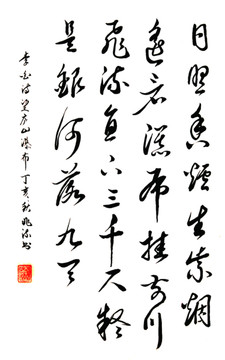 日照香爐生紫烟
遥看瀑布挂前川
飛流直下三千尺疑
是銀河落九天
李白詩望庐山瀑布丁亥秋兆书